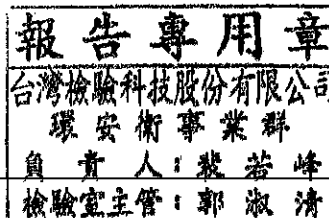 報告專用章
台灣檢驗科技股份有限公司
環安衛事業群
負責人：裁若峰
檢驗室主管：郭淑清